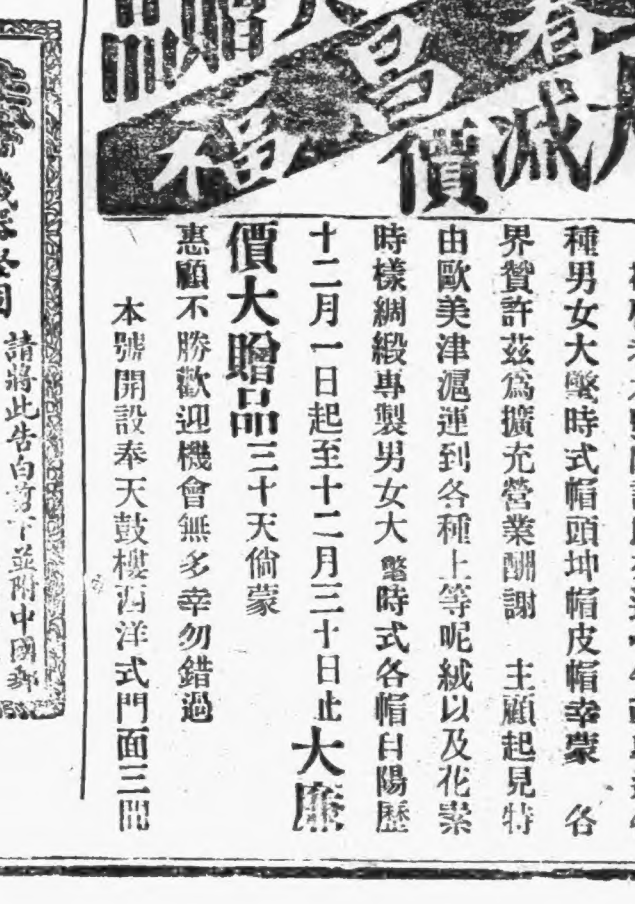 大減價
春昌福
大贈品
種男女大氅時式帽頭坤帽皮帽幸蒙　各
界贊許茲爲擴充營業酬謝　主顧起見特
由歐美津滬運到各種上等呢絨以及花素
時樣綢緞專製男女大氅時式各帽自陽歷
十二月一日起至十二月三十日止大廉
價大贈品三十天倘蒙
惠顧不勝歡迎機會無多幸勿錯過
本號開設奉天鼓樓西洋式門面三間
請將此告白剪下並附中國郵